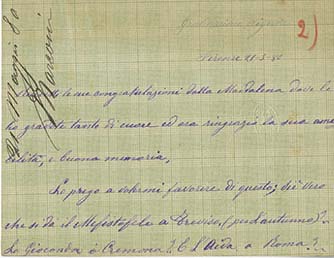 2)
Firenze 21-3-80
le sue congratulazioni dalla Maddalena dove le
ho gradite tanto di cuore ed ora ringrazio la sua ama
bilità, e buona memoria,
La prego a volermi favorire di questo; di' vero
che si dà il Mefistofele a Treviso, (per l'autunno)?
La Gioconda a Cremona? E L'Aida a Roma?